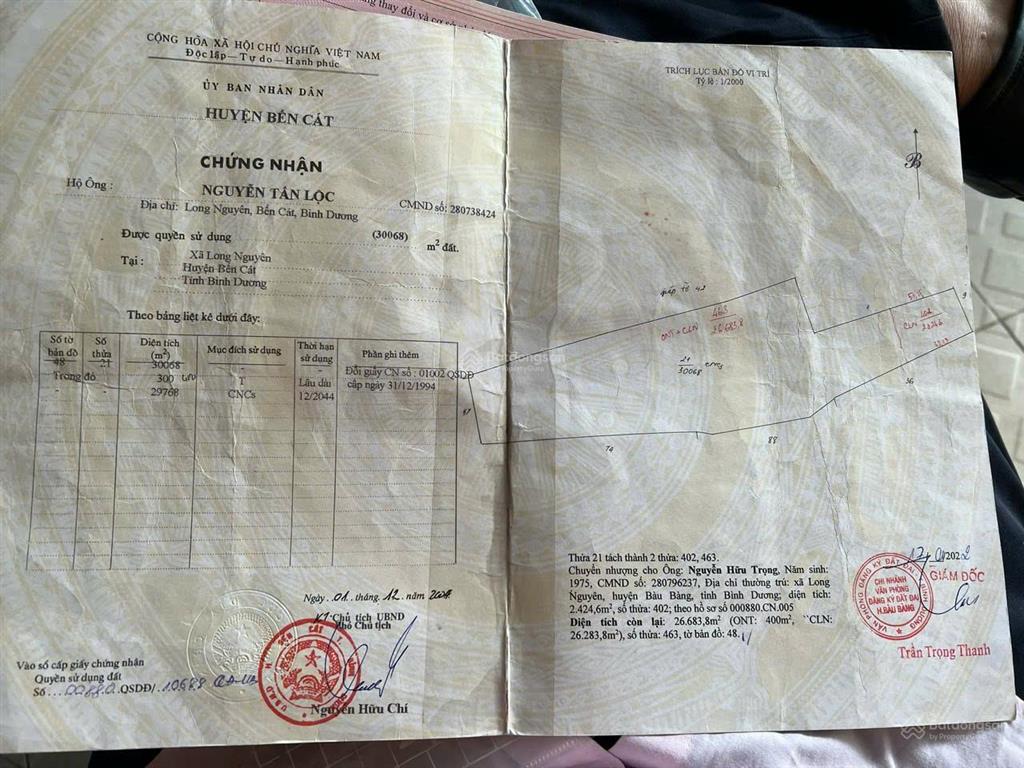 CỘNG HÒA XÃ HỘI CHỦ NGHĨA VIỆT NAM
Độc lập — Tự do — Hạnh phúc
ỦY BAN NHÂN DÂN
HUYỆN BẾN CÁT
CHỨNG NHẬN
Hộ Ông : NGUYỄN TẤN LỘC
CMND số: 280738424
Địa chỉ: Long Nguyên, Bến Cát, Bình Dương
Được quyền sử dụng (30068) m² đất.
Tại : Xã Long Nguyên
Huyện Bến Cát
Tỉnh Bình Dương
Theo bảng liệt kê dưới đây:
Số tờ bản đồ Số thửa Diện tích (m²) Mục đích sử dụng Thời hạn sử dụng Phần ghi thêm
48 21 30068 - - Đổi giấy CN số : 01002 QSDĐ
Trong đó 300 T Lâu dài cấp ngày 31/12/1994
29768 CNCs 12/2044
Ngày 01 tháng 12 năm 2004
KT Chủ tịch UBND
Phó Chủ tịch
Nguyễn Hữu Chí
Vào sổ cấp giấy chứng nhận
Quyền sử dụng đất
Số QSDĐ/
TRÍCH LỤC BẢN ĐỒ VỊ TRÍ
Tỷ lệ : 1/2000
B
giáp tờ 42
463
ONT + CLN 26683,8
402
CLN
9
21
30068
87
74
88
56
Thửa 21 tách thành 2 thửa: 402, 463.
Chuyển nhượng cho Ông: Nguyễn Hữu Trọng, Năm sinh:
1975, CMND số: 280796237, Địa chỉ thường trú: xã Long
Nguyên, huyện Bàu Bàng, tỉnh Bình Dương; diện tích:
2.424,6m², số thửa: 402; theo hồ sơ số 000880.CN.005
Diện tích còn lại: 26.683,8m² (ONT: 400m², CLN:
26.283,8m²), số thửa: 463, tờ bản đồ: 48.
GIÁM ĐỐC
CHI NHÁNH
VĂN PHÒNG
ĐĂNG KÝ ĐẤT ĐAI
H.BÀU BÀNG
Trần Trọng Thanh
Batdongsan
by PropertyGuru
Batdongsan
by PropertyGuru